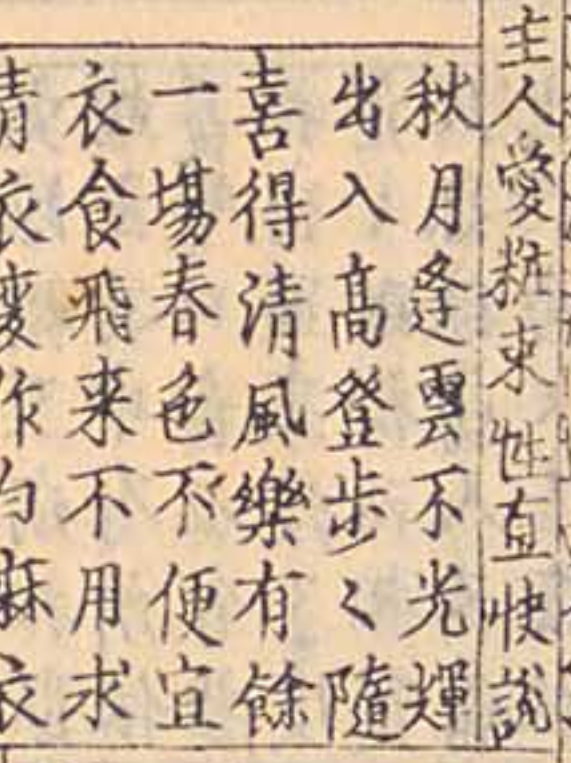 主人愛粧束性直快說
秋月逢雲不光輝
出入高登步〻隨
喜得清風樂有餘
一場春色不便宜
衣食飛来不用求
衣変作白麻衣